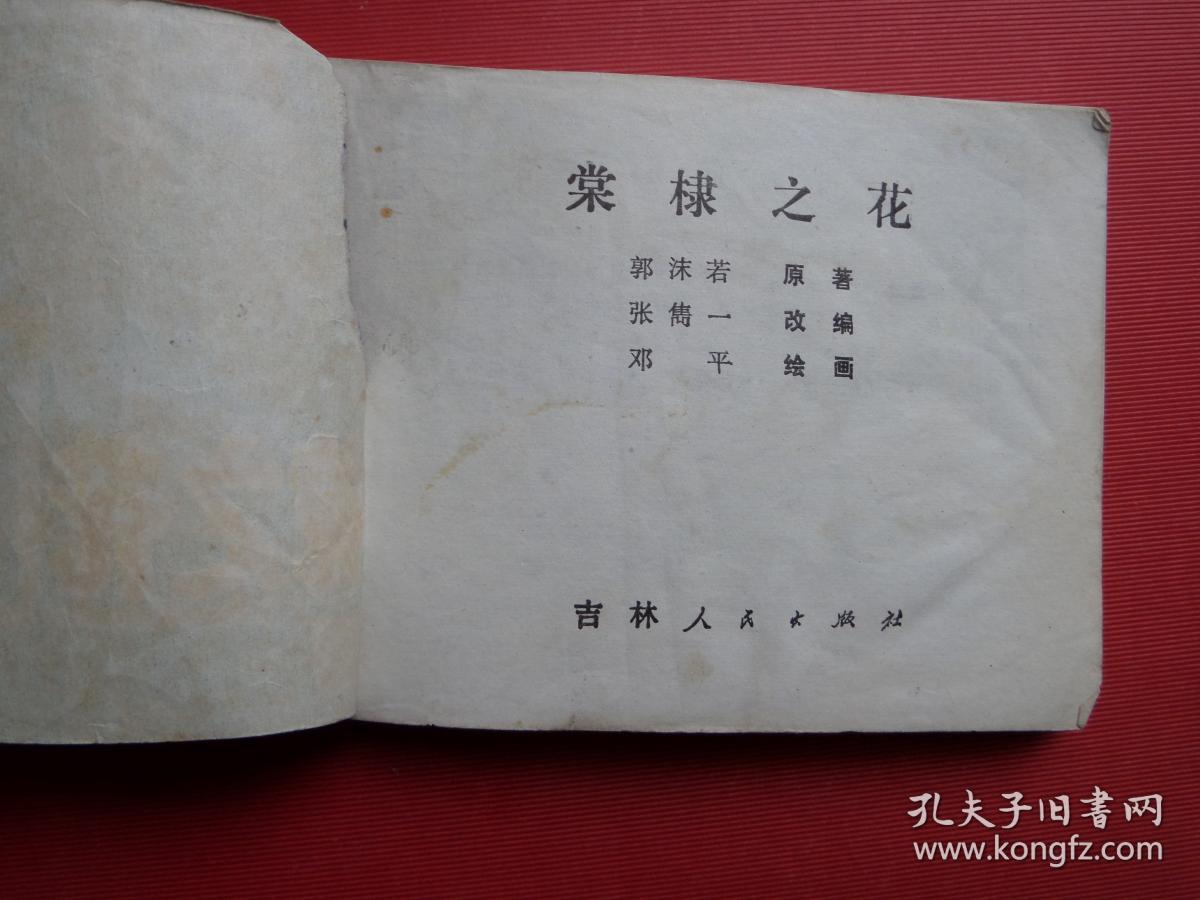 棠棣之花
郭沫若 原著
张儁一 改编
邓平 绘画
吉林人民出版社
孔夫子旧书网
www.kongfz.com